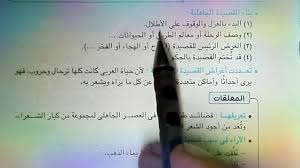 بناء القصيدة الجاهلية
(١) البدء بالغزل والوقوف على الأطلال.
(٢) وصف الرحلة أو معالم الطريق أو الحيوانات ...
(٣) الغرض الرئيس للقصيدة أو الهجاء أو الفخر ...)
(٤) تُختم القصيدة بالحكم
تعددت أغراض القصيدة الجاهلية؛ لأن حياة العربي كانت كلها ترحال وحروب، فهو
يرى أحداثًا وأماكن متعددة تجعله يعبر عن كل ما يراه ويشعر به.
المعلقات
تعريفها: قصائد في العصر الجاهلي لمجموعة من كبار الشعراء،
وتُعد من أجود الشعر
الآراء في سبب
بماء الذهب.